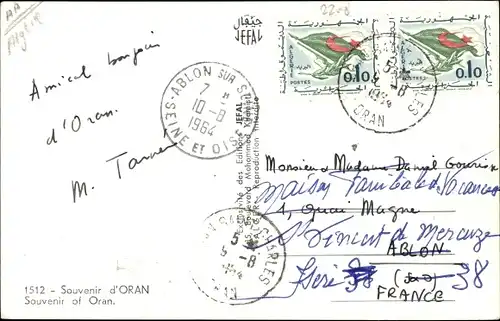 AA
Algérie
جيڤال
JEFAL
22-8
POSTES
0,10
POSTES
0,10
ABLON SUR SEINE
7 H
10-8
1964
SEINE ET OISE
ST CHARLES
5
9-8
1964
ORAN
Amical bonjour
d'Oran.
M.
Exclusivité des Editions JEFAL
Boulevard Mohammed
Reproduction Interdite
Monsieur & Madame Daniel
Maison Familiale de Vacances
1, Quai Magne
St Vincent de Mercuze
ABLON
Isère 38
(S&O) 38
FRANCE
ST CHARLES
5
9-8
1964
1512 - Souvenir d'ORAN
Souvenir of Oran.